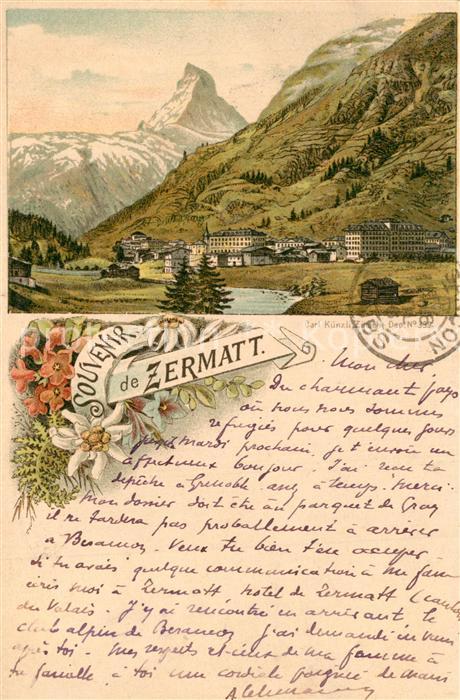 Carl Künzli, Zürich Dep. No 332
SOUVENIR
de ZERMATT.
Mon cher
Du charmant pays
où nous nous sommes
réfugiés pour quelques jours
jusqu'à mardi prochain, je t'envoie un
affectueux bonjour. J'ai reçu ta
dépêche à Grenoble assez à temps. Merci.
Mon dossier doit être au parquet de Gray
il ne tardera pas probablement à arriver
à Besançon. Veux tu bien t'en occuper
Si tu avais quelque communication à me faire
écris moi à Zermatt hotel de Zermatt (canton
du Valais. J'y ai rencontré en arrivant le
club alpin de Besançon j'ai demandé en vain
après toi. Mes respects et ceux de ma femme à
ta famille, à toi une cordiale poignée de main